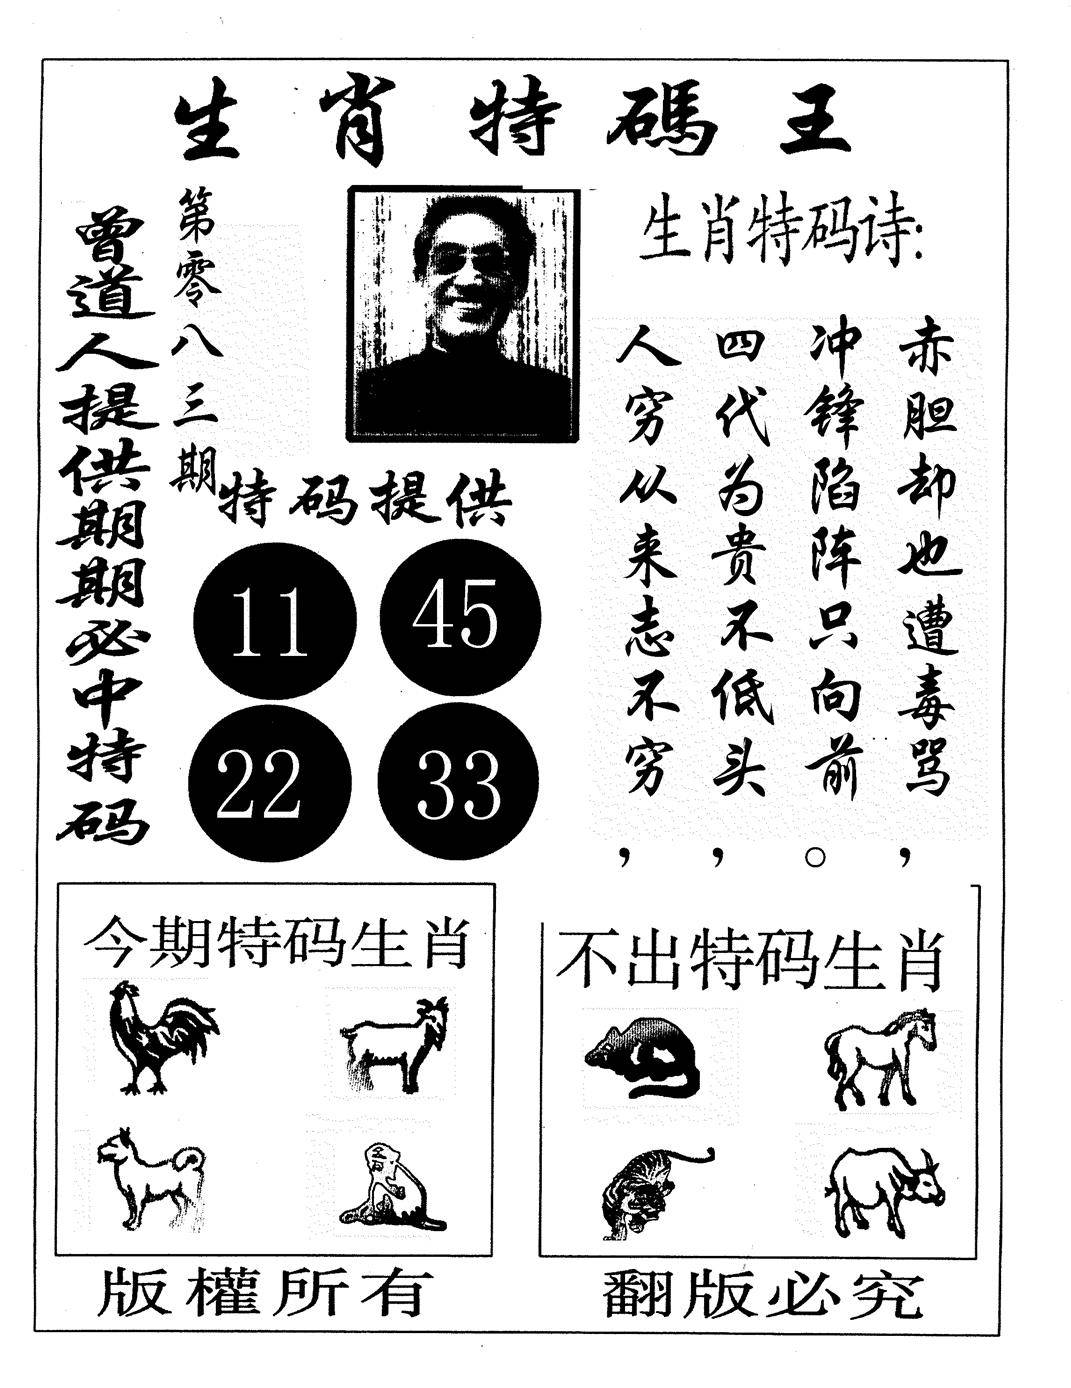 生肖特碼王
曾道人提供期期必中特码
第零八三期
生肖特码诗:
赤胆却也遭毒骂,
冲锋陷阵只向前。
四代为贵不低头,
人穷从来志不穷,
特码提供
11 45
22 33
今期特码生肖
不出特码生肖
版權所有
翻版必究